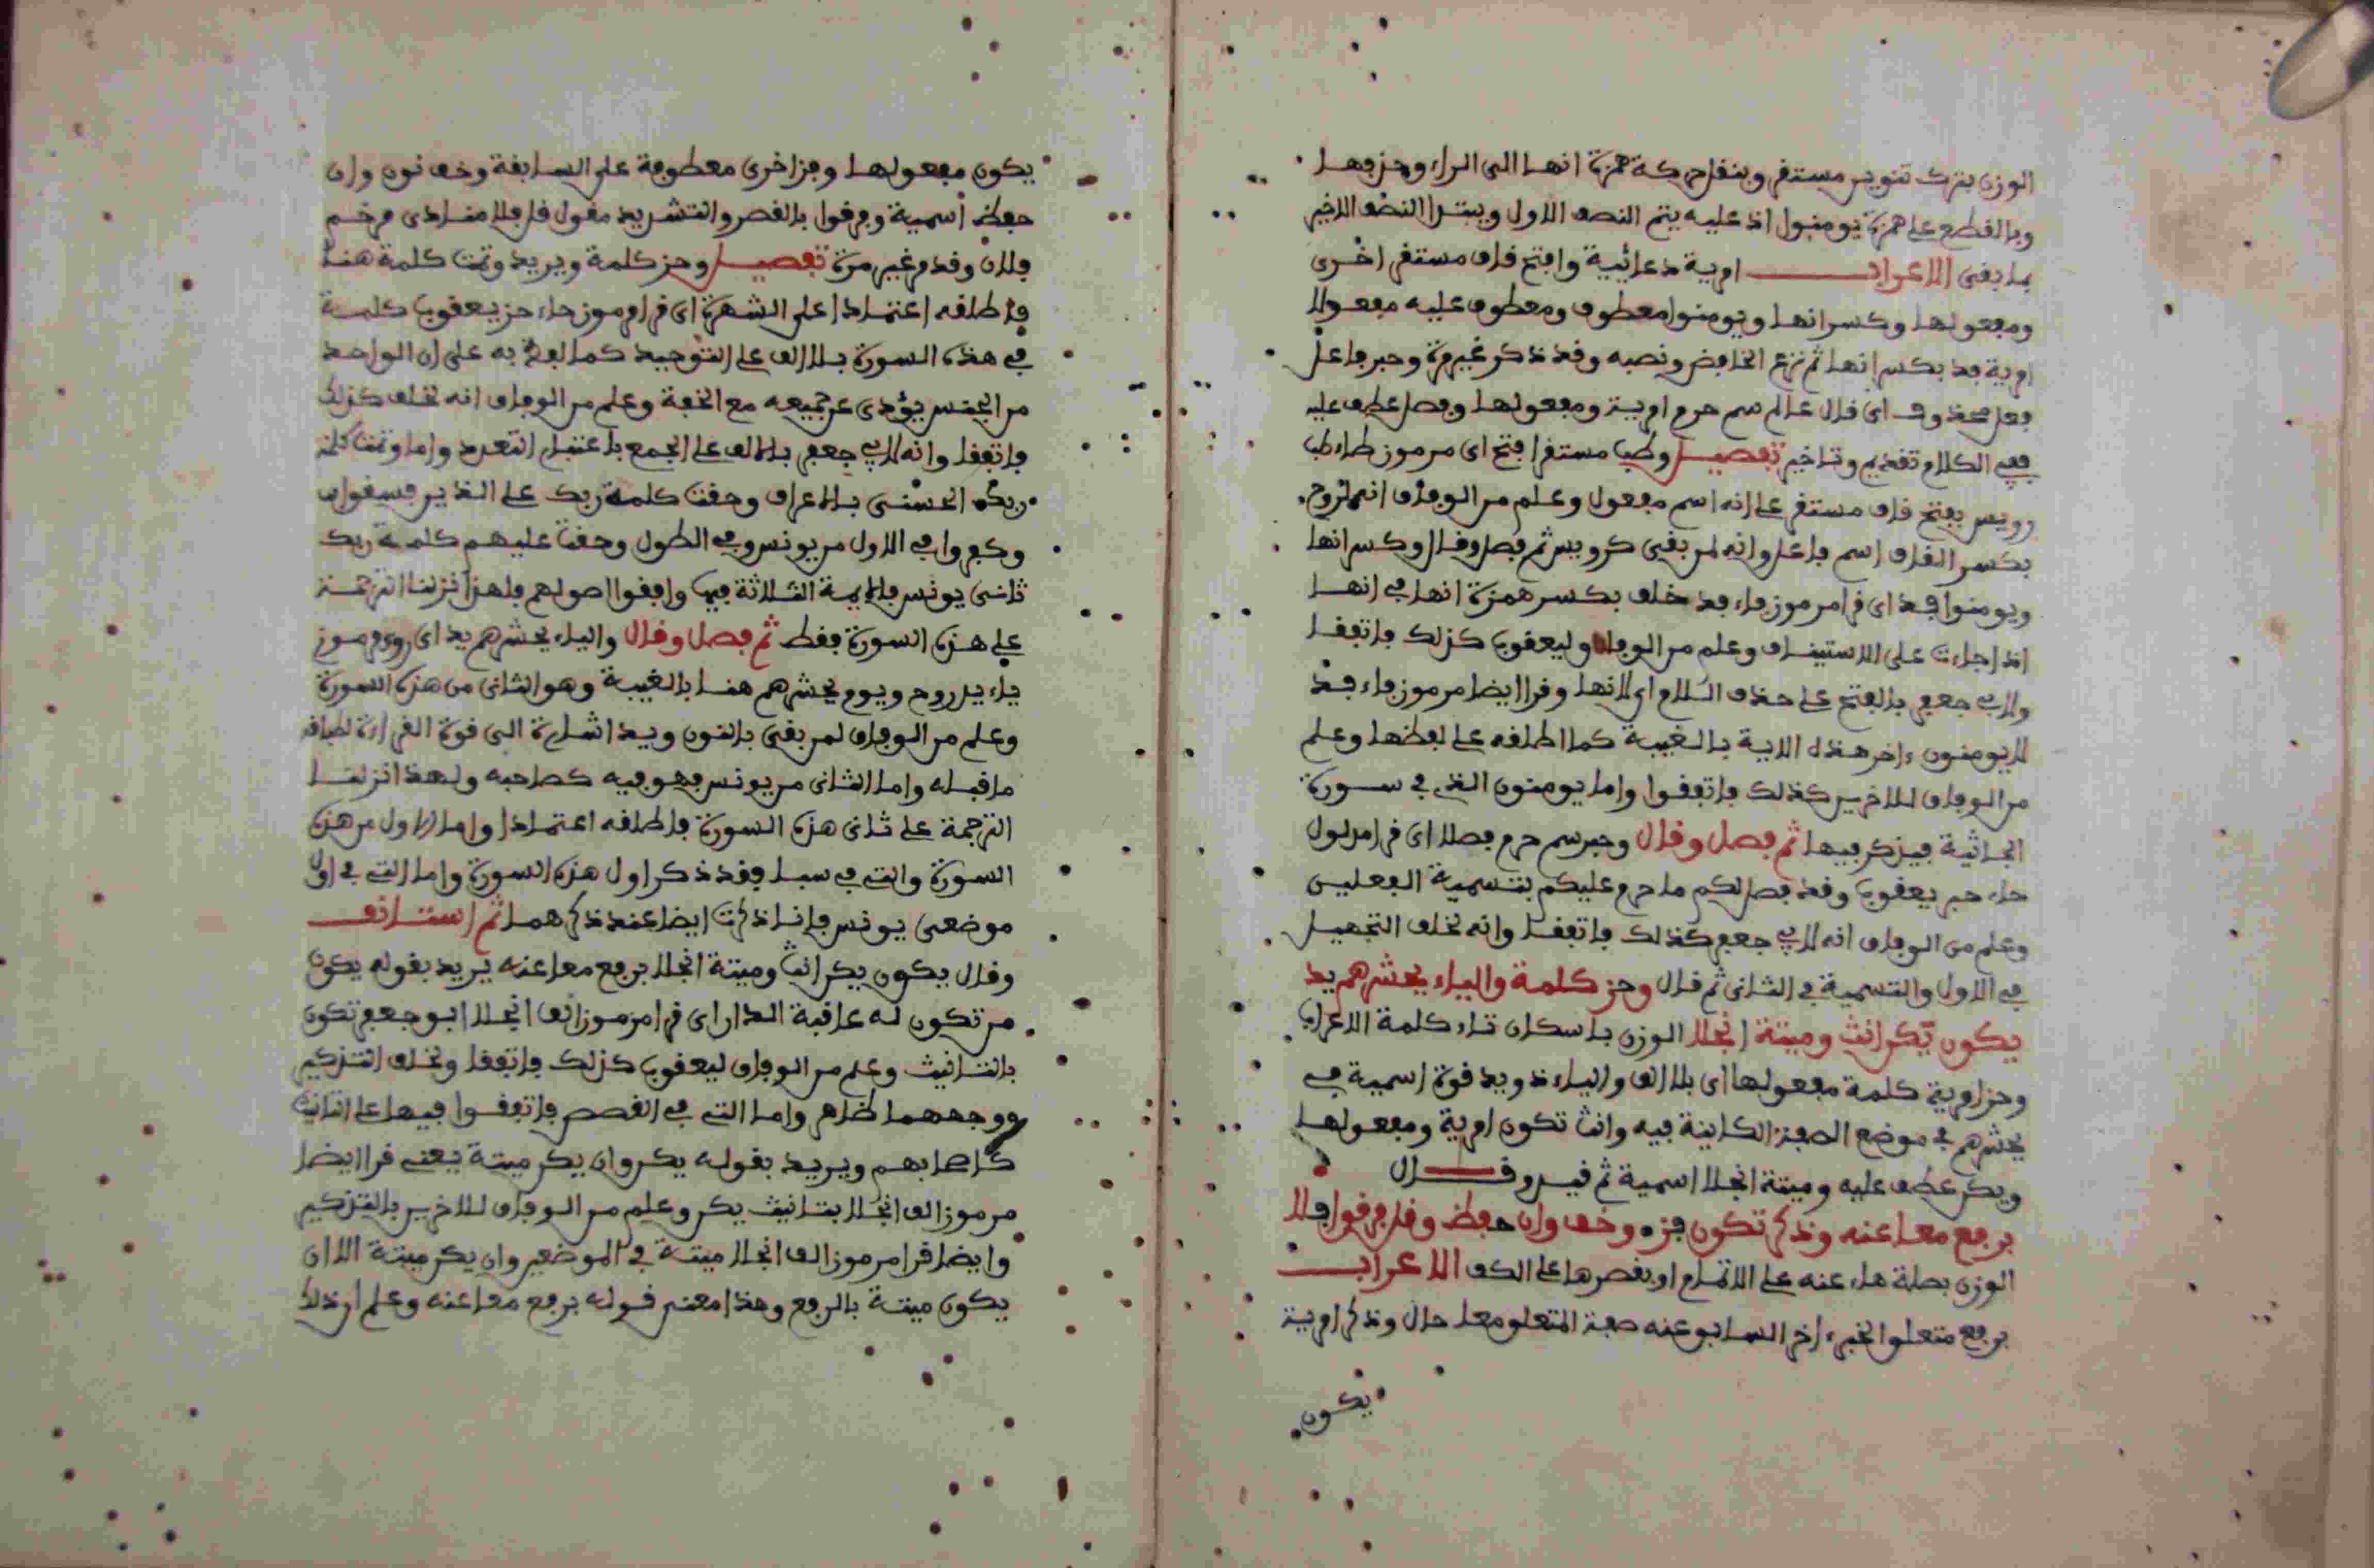 الوزن بترك تنوين مستقر وبنقل حركة همزة انها الى الراء وحذفها
وبالقطع على همزة يومنوا اذ عليه يتم النصف الاول ويبتدا النصف الاخير
بما بقى الاعراب امرية دعائية وافتح قاف مستقر اخرى
ومفعولها وكسر انها ويومنوا معطوف ومعطوف عليه مفعولا
امرية فد بكسر انها ثم نزع الخافض ونصبه وقد ذكر غير مرة وحبر فاعل
فعل محذوف اى قال عالم سم حرم امرية ومفعولها وفصل عطف عليه
ففى الكلام تقديم وتاخير تفصيل وطب مستقر افتح اى مرموز طاء طب
رويس بفتح قاف مستقر على انه اسم مفعول وعلم من الوفاق انه لروح
بكسر القاف اسم فاعل وانه لمن بقى كرويس ثم فصل وقال وكسر انها
ويومنوا فد اى قرا مرموز فاء فد خلف بكسر همزة انها فى انها
اذا جاءت على الاستيناف وعلم من الوفاق وليعقوب كذلك فاتفقا
ولابى جعفر بالفتح على حذف اللام اى لانها وقرا ايضا مرموز فاء فد
لا يومنون ءاخر هذه الاية بالغيبة كما اطلقه على لفظها وعلم
من الوفاق للاخرين كذلك فاتفقوا واما يومنون الذى فى سورة
الجاثية فيذكر فيها ثم فصل وقال وحبر سم حرم فصلا اى قرا مدلول
حاء حبر يعقوب وقد فصل لكم ما حرم عليكم بتسمية الفعلين
وعلم من الوفاق انه لابى جعفر كذلك فاتفقا وانه لخلف التجهيل
فى الاول والتسمية فى الثانى ثم قال وحز كلمة والياء يحشرهم يد
يكون يكن انث وميتة انجلا الوزن باسكان تاء كلمة الاعراب
وحز امرية كلمة مفعولها اى بلا الف والياء ذو يد قوة اسمية فى
يحشرهم فى موضع الصفة الكاينة فيه وانث تكون امرية ومفعولها
ويكن عطف عليه وميتة انجلا اسمية ثم قيد وقال
برفع معا عنه وذكر تكون فز وخف وان حفظ وقل فرقوا فلا
الوزن بصلة هاء عنه على الاتمام او بقصرها على الكف الاعراب
برفع متعلق الخبر ءاخر السابق عنه صفة المتعلق معا حال وذكر امرية
يكون
يكون مفعولها وفز اخرى معطوفة على السابقة وخف نون وان
حفظ اسمية وفرقوا بالقصر والتشديد مقول قل فلا منادى مرخم
فلان وقد مر غير مرة تفصيل وحز كلمة ويريد وتمت كلمة هنا
فاطلقه اعتمادا على الشهرة اى قرا مرموز حاء حز يعقوب كلمة
فى هذه السورة بلا الف على التوحيد كما لفظ به على ان الواحد
من الجنس يؤدى عن جميعه مع الخفة وعلم من الوفاق انه لخلف كذلك
فاتفقا وانه لابى جعفر بالالف على الجمع باعتبار التعدد واما وتمت كلمة
ربك الحسنى بالاعراف وحقت كلمة ربك على الذين فسقوا
وكفروا فى الاول من يونس وفى الطول وحقت عليهم كلمة ربك
ثانى يونس فالايمة الثلاثة فيها وافقوا اصولهم فلهذا نزلنا الترجمة
على هذه السورة فقط ثم فصل وقال والياء يحشرهم يد اى روى مرموز
ياء يد روح ويوم يحشرهم هنا بالغيبة وهو الثانى من هذه السورة
وعلم من الوفاق لمن بقى بالنون ويد اشارة الى قوة القراءة لطباق
ما قبله واما الثانى من يونس فهو فيه كصاحبه ولهذا نزلنا
الترجمة على ثانى هذه السورة فاطلقه اعتمادا واما الاول من هذه
السورة والتى فى سبا فقد ذكر اول هذه السورة واما التى فى اول
موضعى يونس فانما ذكرت ايضا عند ذكرهما ثم استانف
وقال يكون يكن انث وميتة انجلا برفع معا عنه يريد بقوله يكون
من تكون له عاقبة الدار اى قرا مرموز الف انجلا ابو جعفر تكون
بالتانيث وعلم من الوفاق ليعقوب كذلك فاتفقا ولخلف التذكير
ووجههما ظاهر واما التى فى القصص فاتفقوا فيها على التانيث
كاصحابهم ويريد بقوله يكن وان يكن ميتة يعنى قرا ايضا
مرموز الف انجلا بتانيث يكن وعلم من الوفاق للاخرين بالتذكير
وايضا قرا مرموز الف انجلا ميتة فى الموضعين وان يكن ميتة الا ان
يكون ميتة بالرفع وهذا معنى قوله برفع معا عنه وعلم ان ذلك